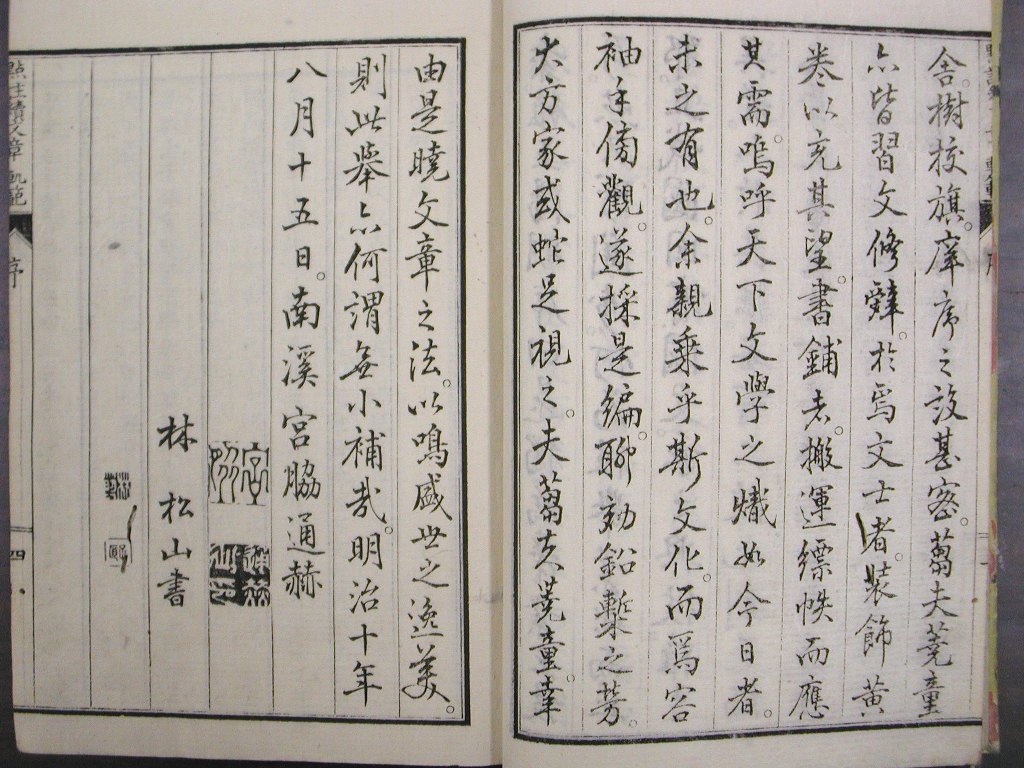 舎。樹挍旗。庠序之設甚密。蒭夫蕘童
亦皆習文修辭。於焉文士者。装飾黄
巻以充其望。書鋪者。搬運縹帙而應
其需。嗚呼天下文學之熾。如今日者。
未之有也。余親乗乎斯文化。而爲容
袖手傍觀。遂採是編。聊効鉛槧之労。
大方家或蛇足視之。夫蒭夫蕘童幸
由是曉文章之法。以鳴盛世之逸美。
則此擧亦何謂無小補哉。明治十年
八月十五日。南溪宮脇通赫
林松山書
點註續文章軌範
序
四